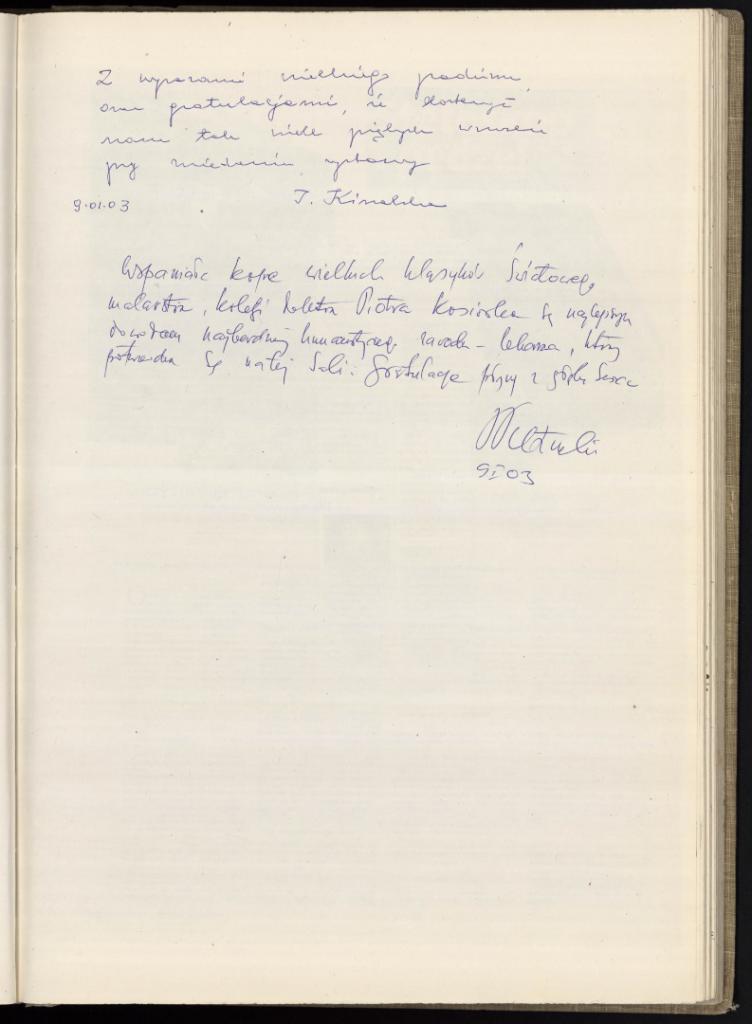 Z wyrazami wielkiego podziwu
oraz gratulacjami, że dostarczył
nam tak wiele pięknych wzruszeń
przy zwiedzaniu wystawy
9.01.03 I. Kinalska
Wspaniałe kopie wielkich klasyków światowego
malarstwa, kolegi doktora Piotra Kosiorka są najlepszym
dowodem najbardziej humanistycznego zawodu – lekarza, który
potwierdza się na tej Sali. Gratulacje płyną z głębi Serca
9 I 03